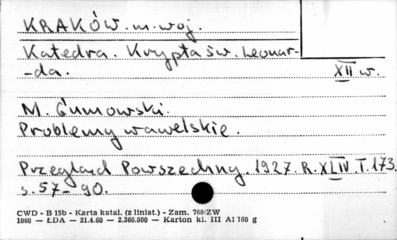 KRAKÓW. m. woj.
Katedra. Krypta św. Leonar-
-da. XII w.
M. Gumowski.
Problemy wawelskie.
Przegląd Powszechny. 1927. R. XLIV. T. 173.
s. 57-90.
CWD - B 15b - Karta katal. (z liniat.) - Zam. 768/ZW
1060 — ŁDA — 21.4.60 — 2.360.000 — Karton kl. III A1 160 g